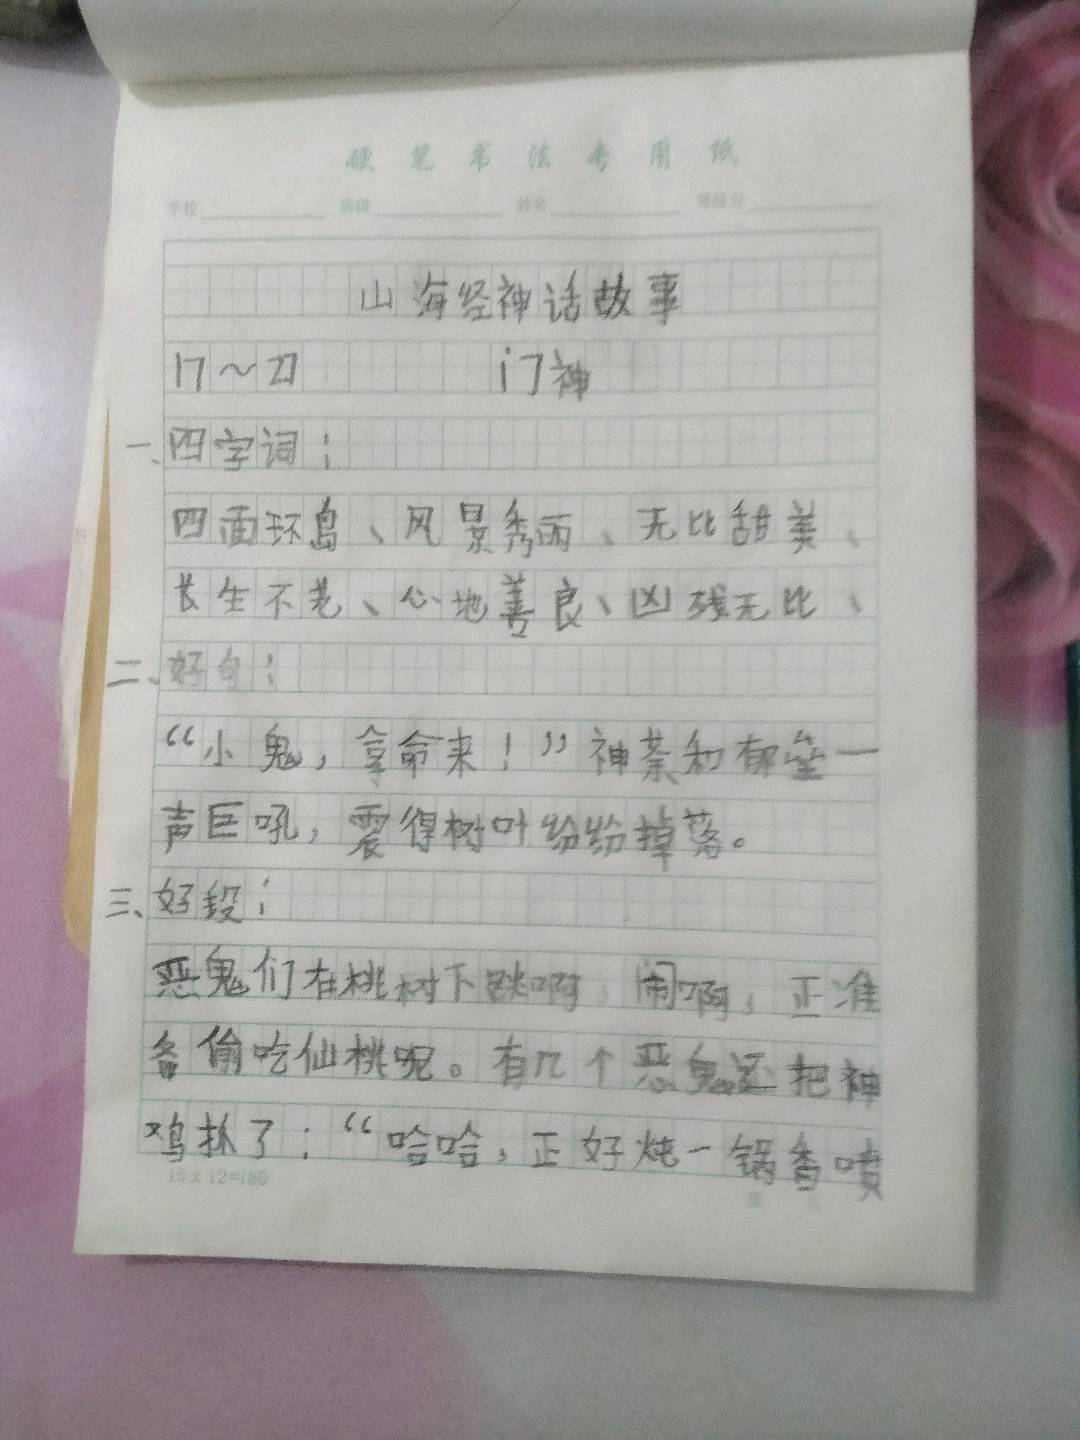 硬笔书法专用纸
学校 班级 姓名 等级分
山海经神话故事
17～21 门神
一、四字词：
四面环岛、风景秀丽、无比甜美、
长生不老、心地善良、凶残无比、
二、好句：
“小鬼，拿命来！”神荼和郁垒一
声巨吼，震得树叶纷纷掉落。
三、好段：
恶鬼们在桃树下跳啊，闹啊，正准
备偷吃仙桃呢。有几个恶鬼还把神
鸡抓了：“哈哈，正好炖一锅香喷
15x12=180